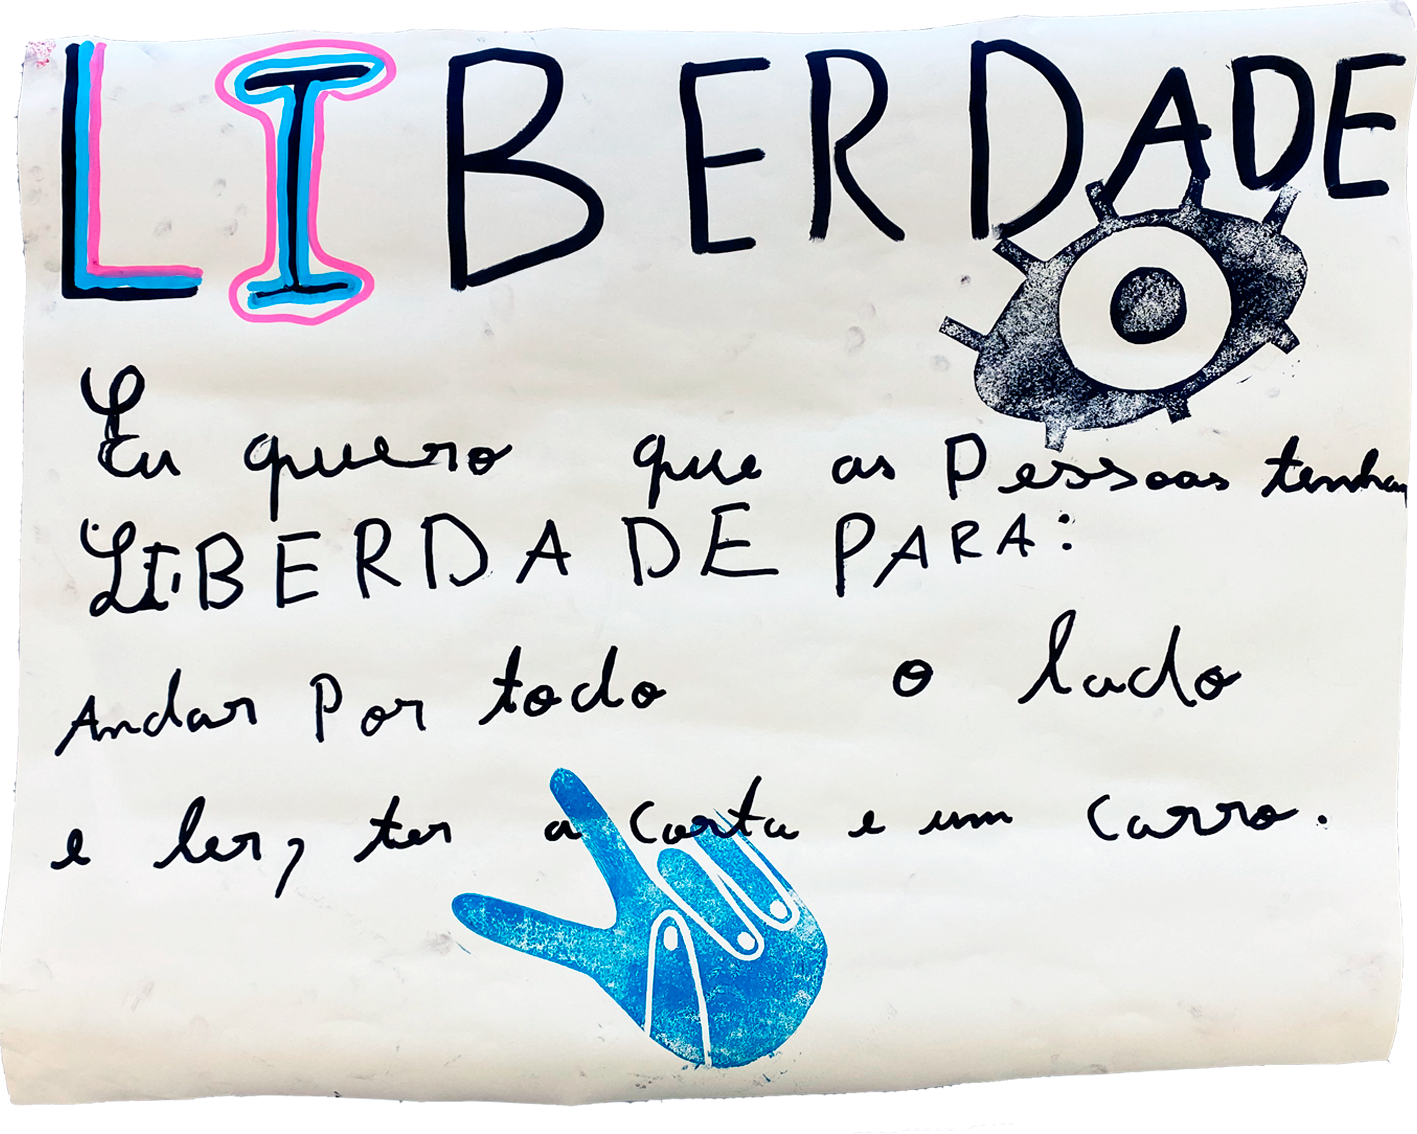 LIBERDADE
Eu quero que as Pessoas tenham
LIBERDADE PARA:
Andar Por todo o lado
e ler, ter a carta e um carro.